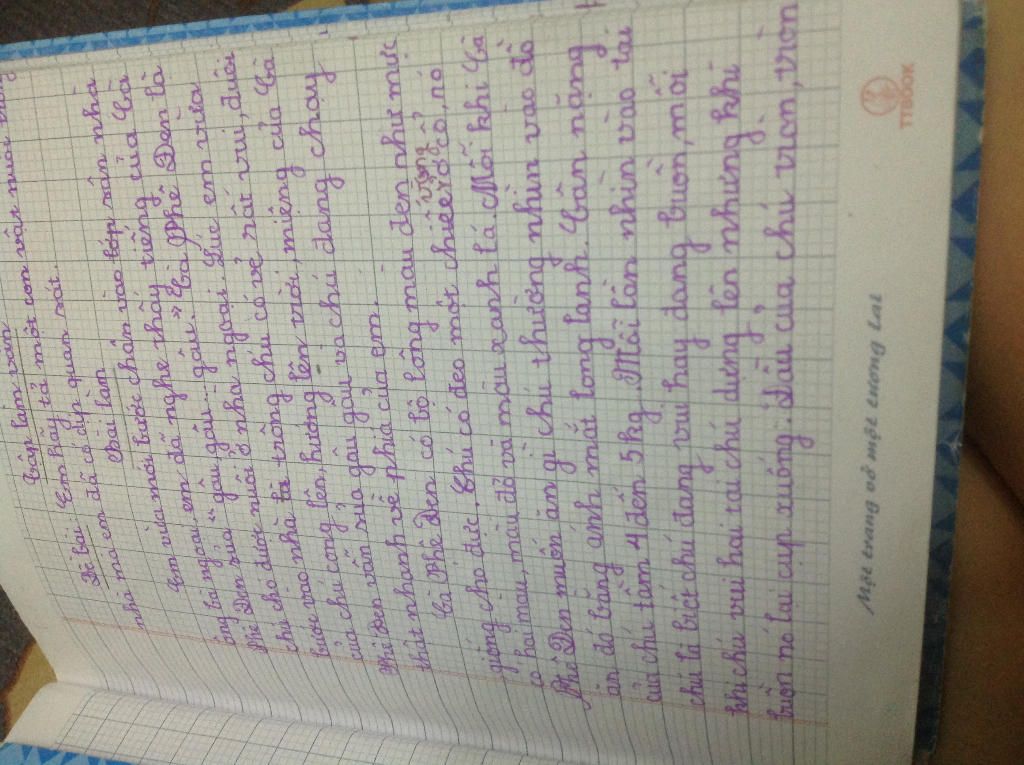 Tập làm văn
Đề bài: Em hãy tả một con vật nuôi trong
nhà mà em đã có dịp quan sát.
Bài làm
Em vừa mới bước chân vào sân nhà
ông bà ngoại em đã nghe thấy tiếng của Cà
Phê Đen sủa "gâu gâu... gâu." Cà Phê Đen là
chú chó được nuôi ở nhà ngoại. Lúc em vừa
bước vào nhà trông chú có vẻ rất vui, đuôi
của chú cong lên, hướng lên trời, miệng của Cà
Phê Đen vẫn sủa gâu gâu và chú đang chạy
thật nhanh về phía của em.
Cà Phê Đen có bộ lông màu đen như mực
giống chó đực. Chú có đeo một chiếc vòng cổ, nó
có hai màu, màu đỏ và màu xanh lá. Mỗi khi Cà
Phê Đen muốn ăn gì chú thường nhìn vào đồ
ăn đó bằng ánh mắt long lanh. Cân nặng
của chú tầm 4 đến 5 kg. Mỗi lần nhìn vào tai
chú là biết chú đang vui hay đang buồn, mỗi
khi chú vui hai tai chú dựng lên nhưng khi
buồn nó lại cụp xuống. Đầu của chú tròn, tròn
Một trang vở một tương lai
TTBOOK